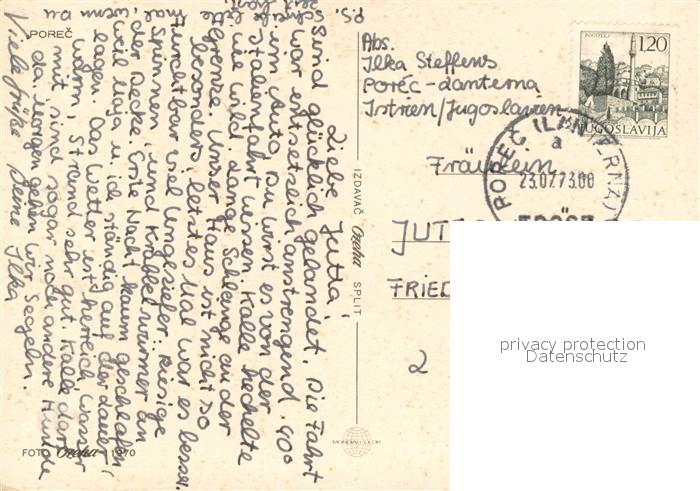 POREČ
Liebe Jutta,
Sind glücklich gelandet. Die Fahrt
war entsetzlich anstrengend. 40°
im Auto, du wirst es von der
Italienfahrt wissen. Kalle hechelte
wie wild. Lange Schlange an der
Grenze. Unser Haus ist nicht so
besonders, letztes Mal war es besser.
Furchtbar viel Ungeziefer. Riesige
Spinnen, und Krabbelwürmer an
der Decke. Erste Nacht kaum geschlafen
weil Maja u. ich ständig auf der Lauer
lagen. Das Wetter ist herrlich, Wasser
warm, Strand sehr gut. Kalle darf
mit, sind sogar noch andere Hunde
da. Morgen gehen wir Segeln.
Viele Grüße Deine Ilka
P.S.
schreibe bitte
mal, wenn du
FOTO Ozeha 1970
IZDAVAČ Ozeha SPLIT
MONDIALCOLOR
Abs.
Ilka Steffens
Poréc-Lanterna
Istrien/Jugoslawien
POČITELJ
1,20
JUGOSLAVIJA
POREČ (LANTERNA)
a
23.07.73.00
Fräulein
JUTT
FRIED
2
privacy protection
Datenschutz